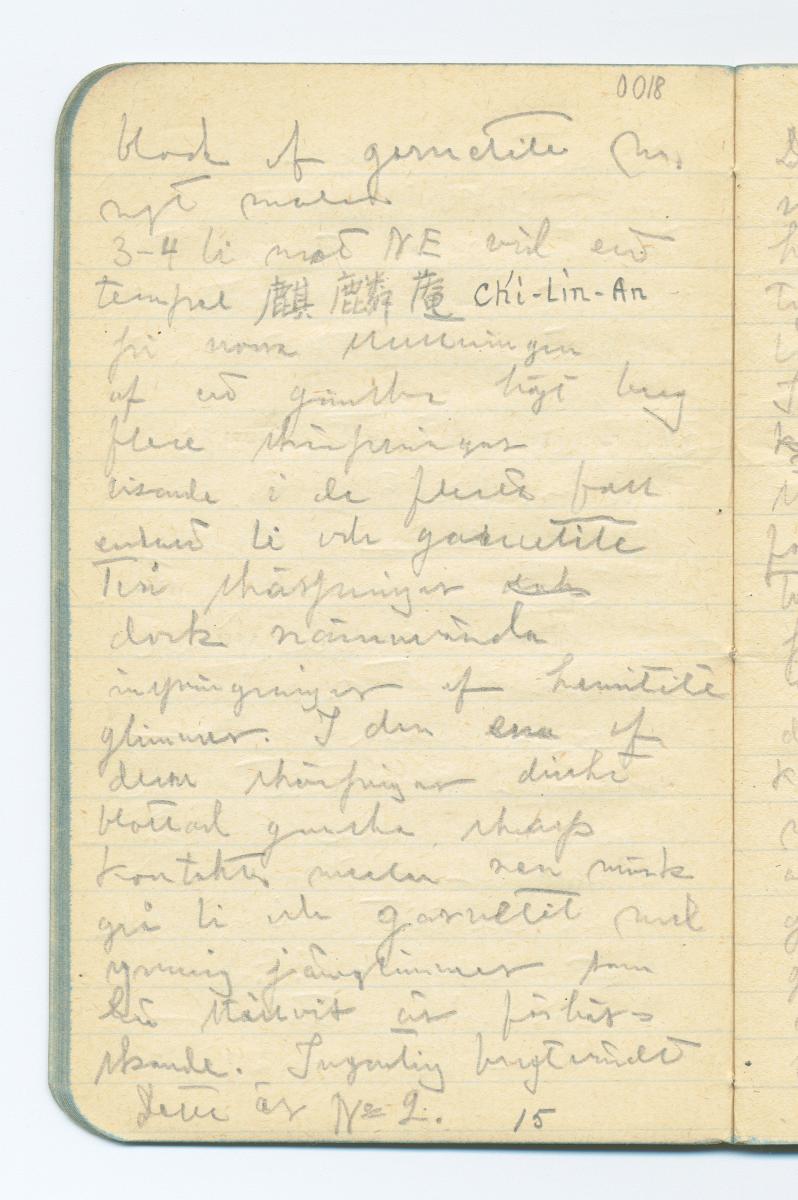 0018
block af garnetite
nytt
3-4 li mot NE vid ett
tempel 麒麟菴 Chi-Lin-An
på norra sluttningen
af ett ganska högt berg
flere skärpningar
visande i de flesta fall
endast li och garnetite
Två skärpningar
dock
insprängningar af hematite
glimmer. I den ena af
dessa skärpningar
blottad ganska skarp
kontakt mellan ren mörk
grå li och garnetit med
ymnig järnglimmer som
här ställvis är förhär-
skande.
Detta är № 2. 15